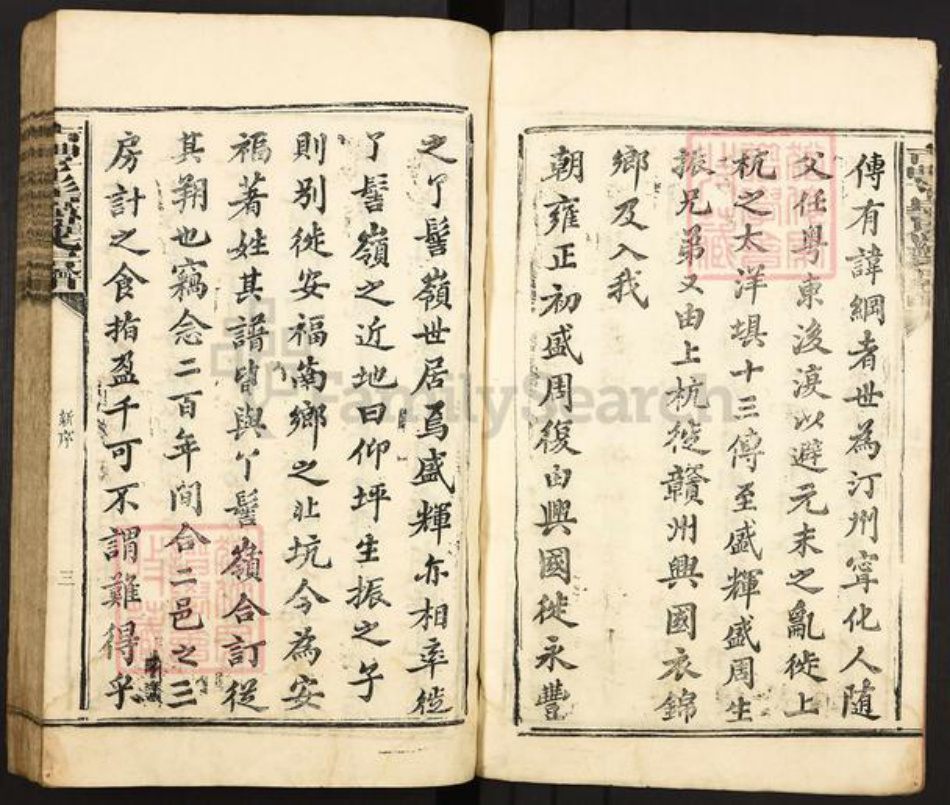 傳有諱綱者世為汀州寧化人隨
父任粤東後淚以避元末之亂徙上
杭之太洋埧十三傳至盛輝盛周生
振兄弟又由上杭徙贛州興國衣錦
鄉及入我
朝雍正初盛周復由興國徙永豐
之丫髻嶺世居焉盛輝亦相率徙
丫髻嶺之近地曰仰坪生振之子
則別徙安福南鄉之北坑今為安
福著姓其譜皆與丫髻嶺合訂從
其朔也竊念二百年間合二邑之三
房計之食指盈千可不謂難得乎
新序
三
FamilySearch